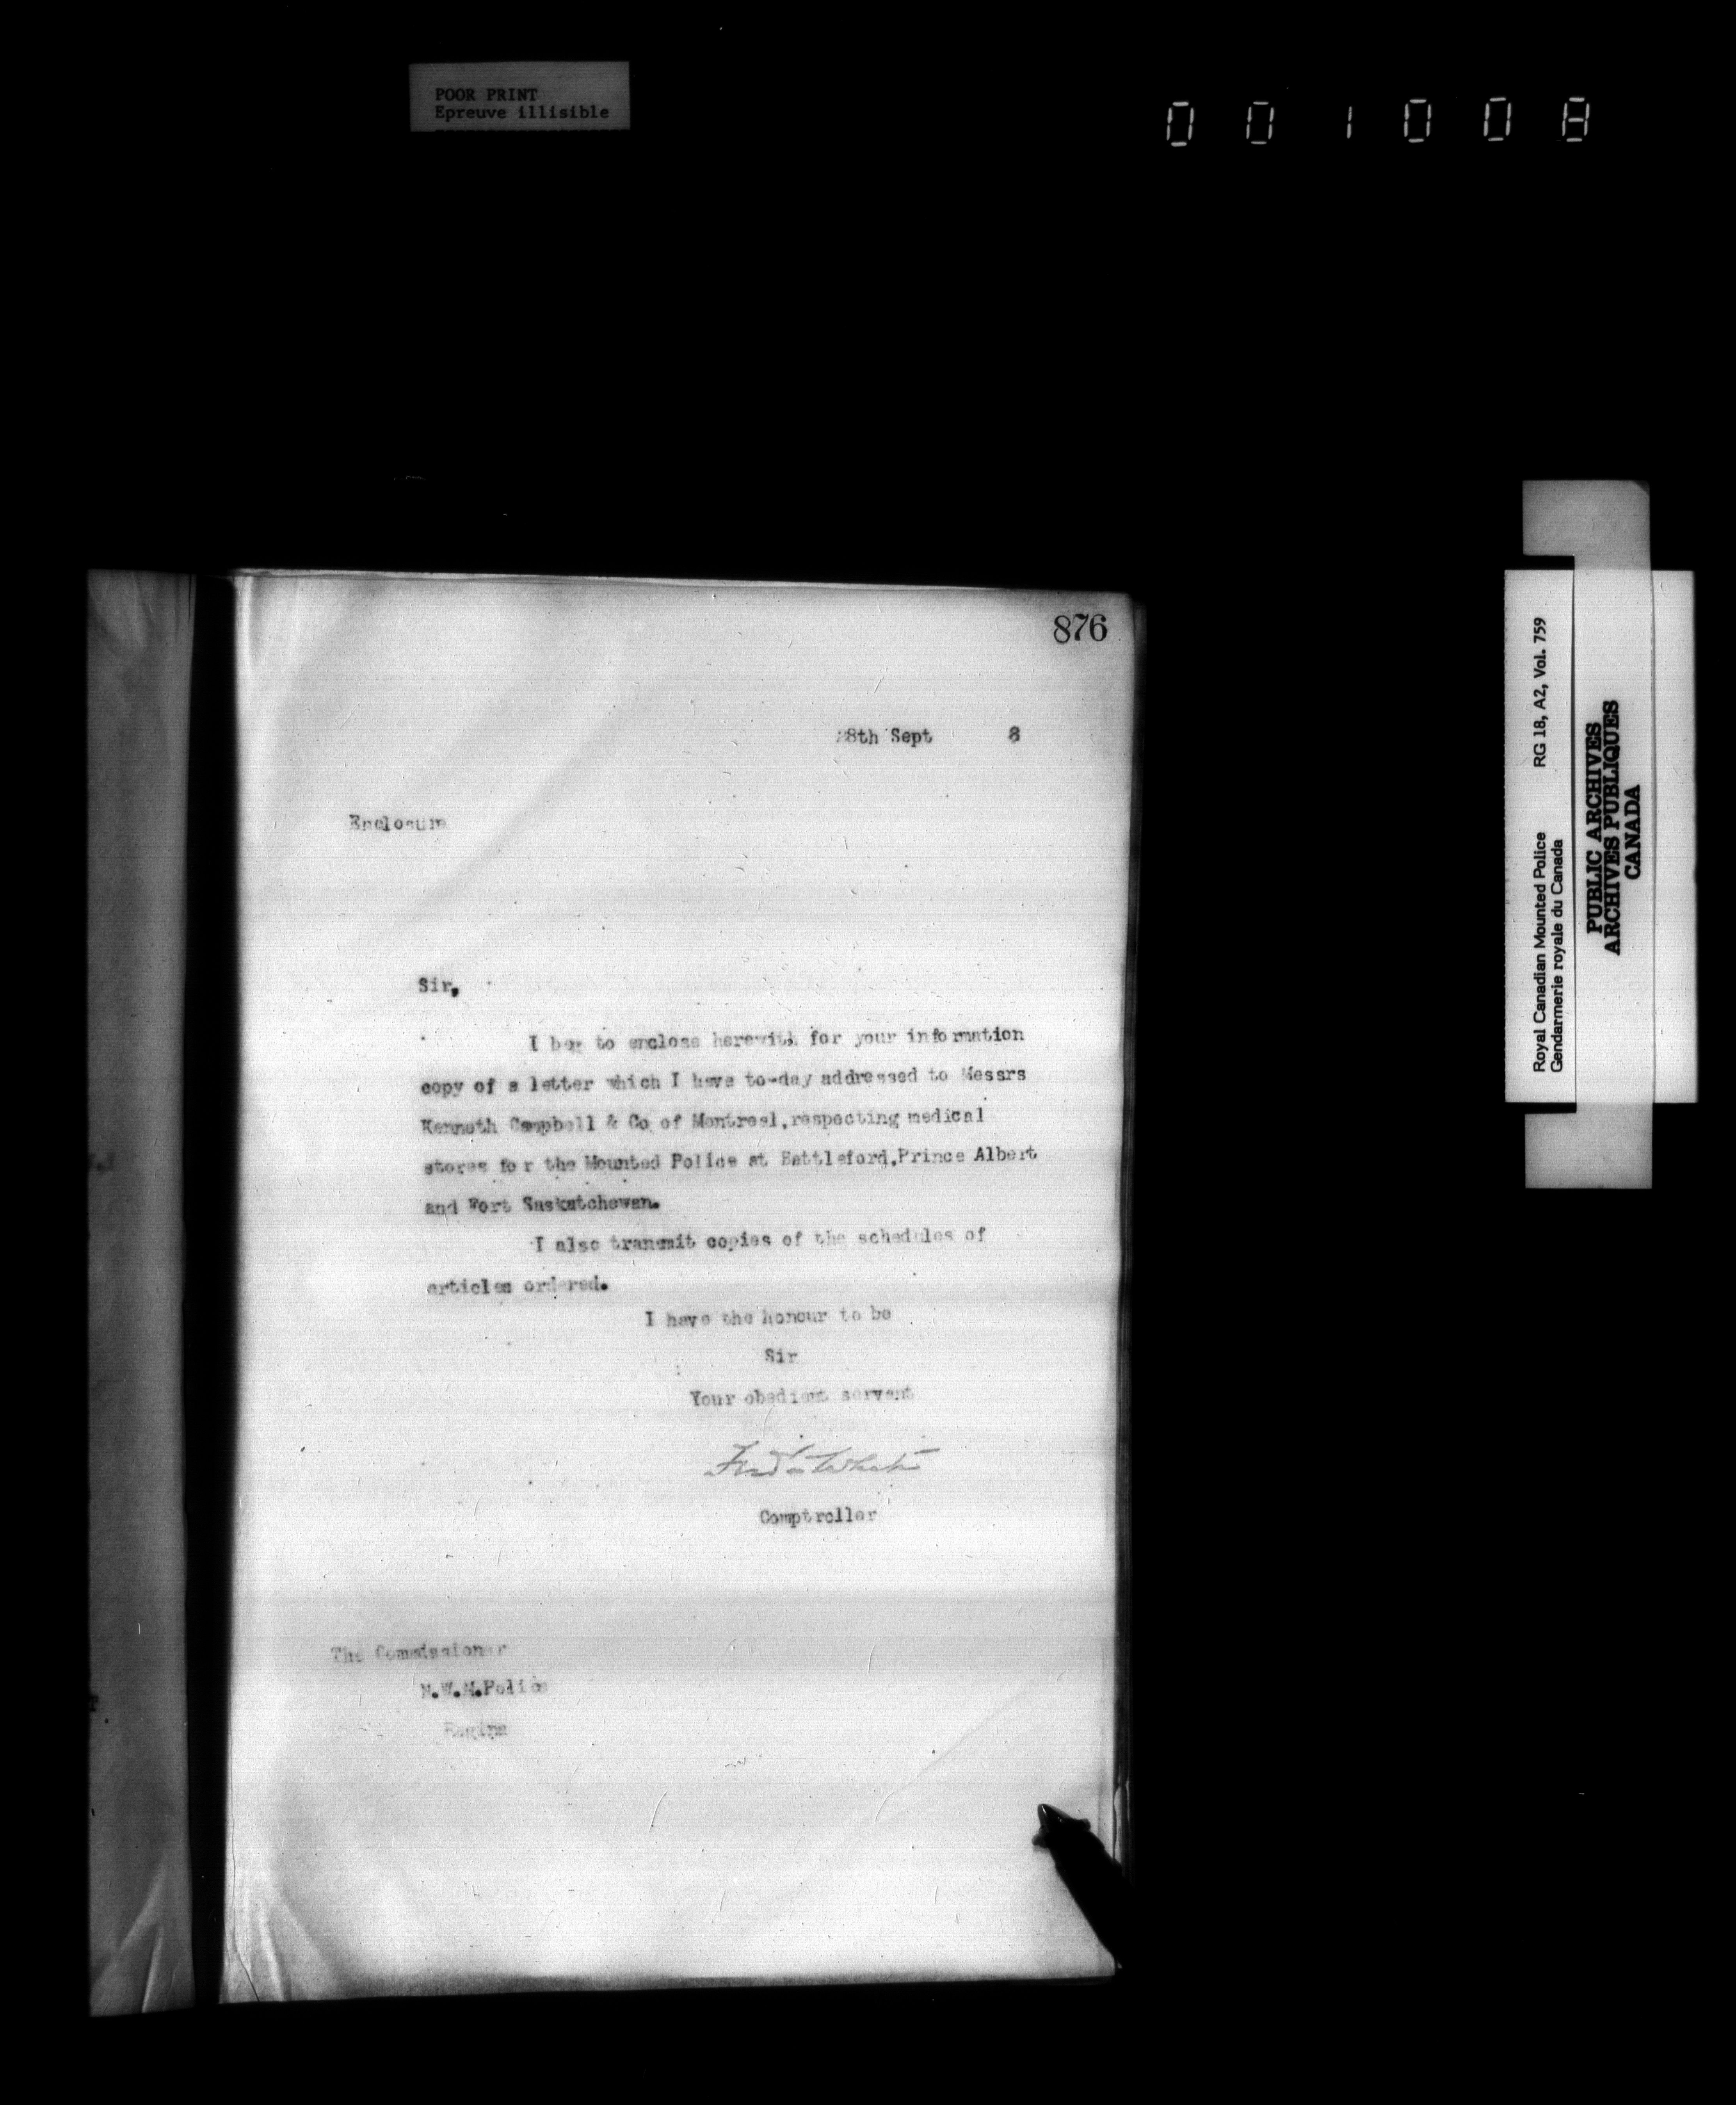 POOR PRINT
Epreuve illisible
001008
876
28th Sept 8
Enclosure
Sir,
I beg to enclose herewith for your information
copy of a letter which I have to-day addressed to Messrs
Kenneth Campbell & Co of Montreal, respecting medical
stores for the Mounted Police at Battleford, Prince Albert
and Fort Saskatchewan.
I also transmit copies of the schedules of
articles ordered.
I have the honour to be
Sir
Your obedient servant
Fred White
Comptroller
The Commissioner
N.W.M.Police
Regina
Royal Canadian Mounted Police RG 18, A2, Vol. 759
Gendarmerie royale du Canada
PUBLIC ARCHIVES
ARCHIVES PUBLIQUES
CANADA